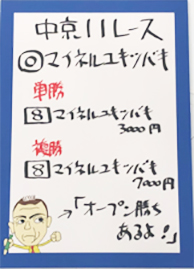 中京11レース
◎マイネルユキツバキ
単勝
8 マイネルユキツバキ
3000円
複勝
8 マイネルユキツバキ
7000円
→「オープン勝ち
あるよ!」